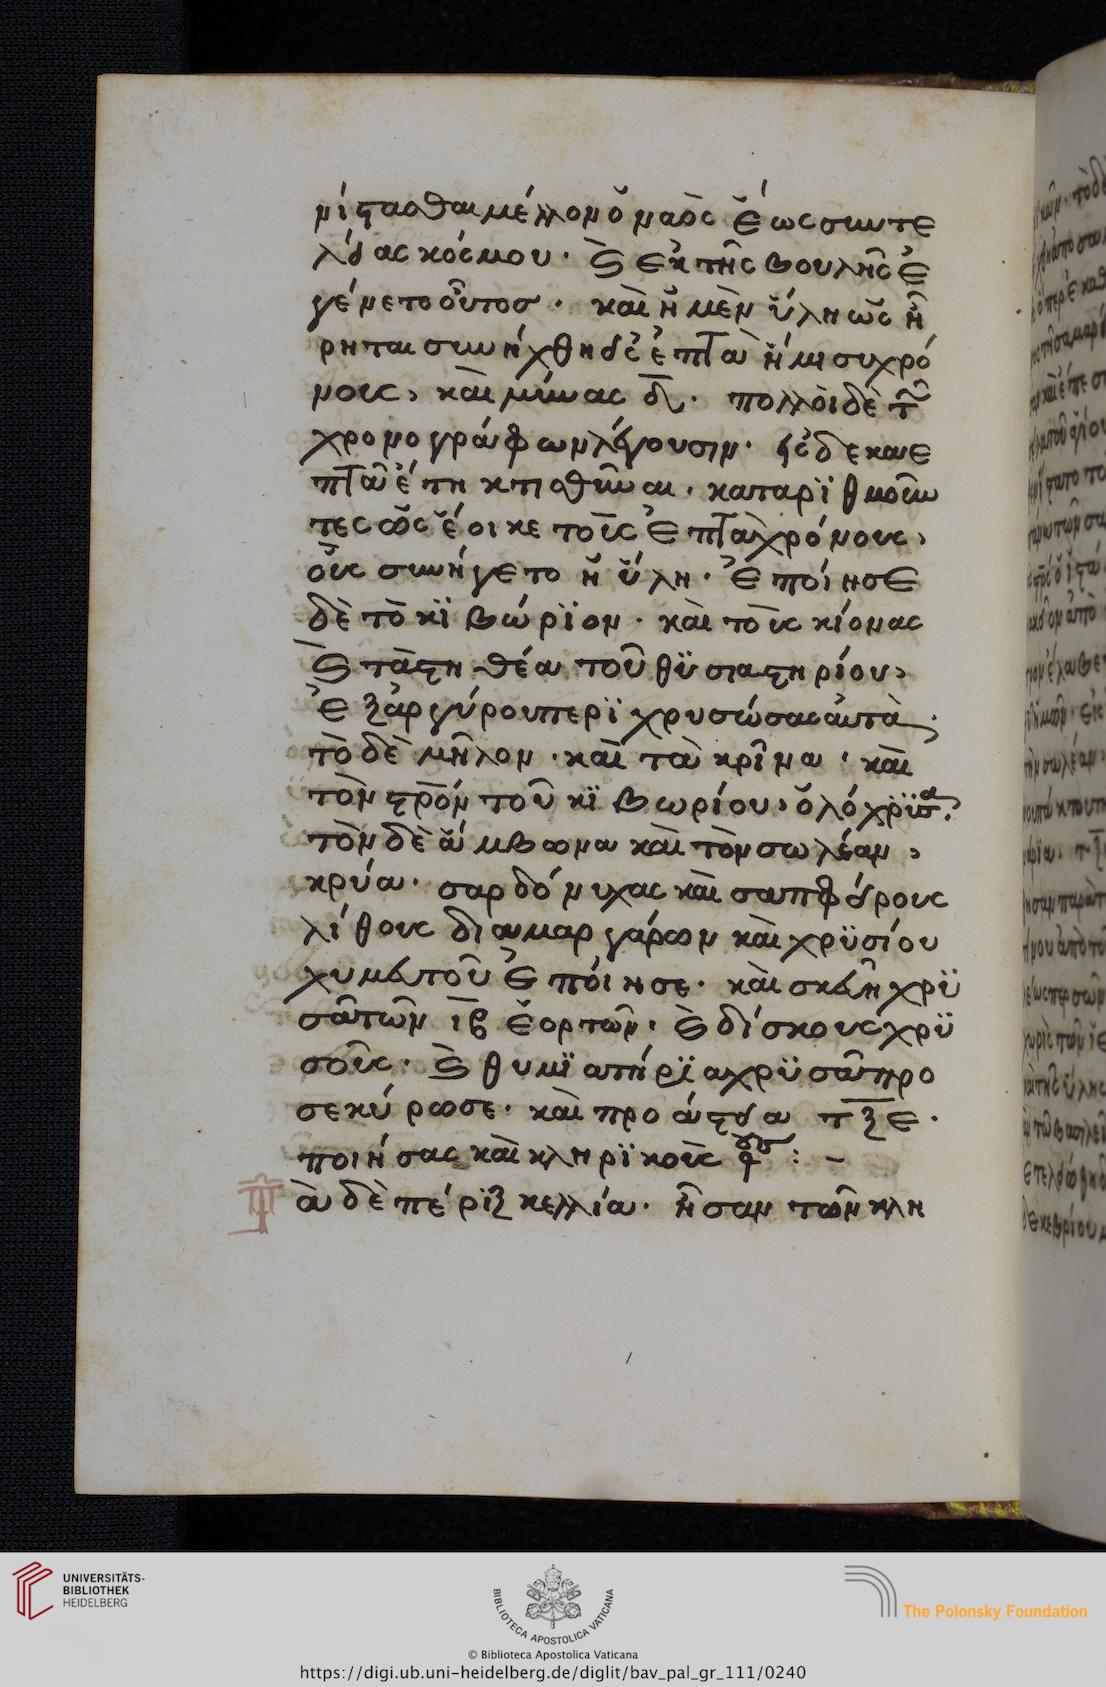 νίστασθαι μέλλον ὁ ναὸς ἕως συντε
λείας κόσμου. καὶ ἐκ τῆς βουλῆς ἐ
γένετο οὗτος. καὶ ἡ μὲν ὕλη ὡς εἴ
ρηται συνήχθη εἰς ἑπτὰ ἥμισυ χρό
νους, καὶ μῆνας δ. πολλοὶ δὲ τῶν
χρονογράφων λέγουσιν. εἰς δεκαε
πτὰ ἔτη κτισθῆναι. καταρϊθμοῦν
τες ὡς ἔοικε τοὺς ἑπτὰ χρόνους,
οὓς συνήγετο ἡ ὕλη. ἐποίησε
δὲ τὸ κϊβώρϊον. καὶ τοὺς κίονας
καὶ τὰ στήθεα τοῦ θϋσιαστηρίου,
ἐξ ἀργύρου περϊχρυσώσας αὐτὰ.
τὸ δὲ μῆλον. καὶ τὰ κρῖνα. καὶ
τὸν στρὸν τοῦ κϊβωρίου, ὁλόχρϋσα.
τὸν δὲ ἄμβωνα καὶ τὸν σωλέαν,
κρύα. σαρδόνυχας καὶ σαπφείρους
λίθους διαμαργάρων καὶ χρϋσίου
χυμευτοῦ ἐποίησε. καὶ σκεύη χρϋ
σᾶ τῶν ιβ ἑορτῶν. καὶ δίσκους χρϋ
σοῦς. καὶ θυμϊατήρϊα χρϋσᾶ προ
σεκύρωσε. καὶ προάστεια τξε.
ποιήσας καὶ κληρϊκοὺς :-
Τὰ δὲ πέρϊξ κελλία. ἦσαν τῶν κλη
UNIVERSITÄTS-
BIBLIOTHEK
HEIDELBERG
BIBLIOTECA APOSTOLICA VATICANA
The Polonsky Foundation
© Biblioteca Apostolica Vaticana
https://digi.ub.uni-heidelberg.de/diglit/bav_pal_gr_111/0240